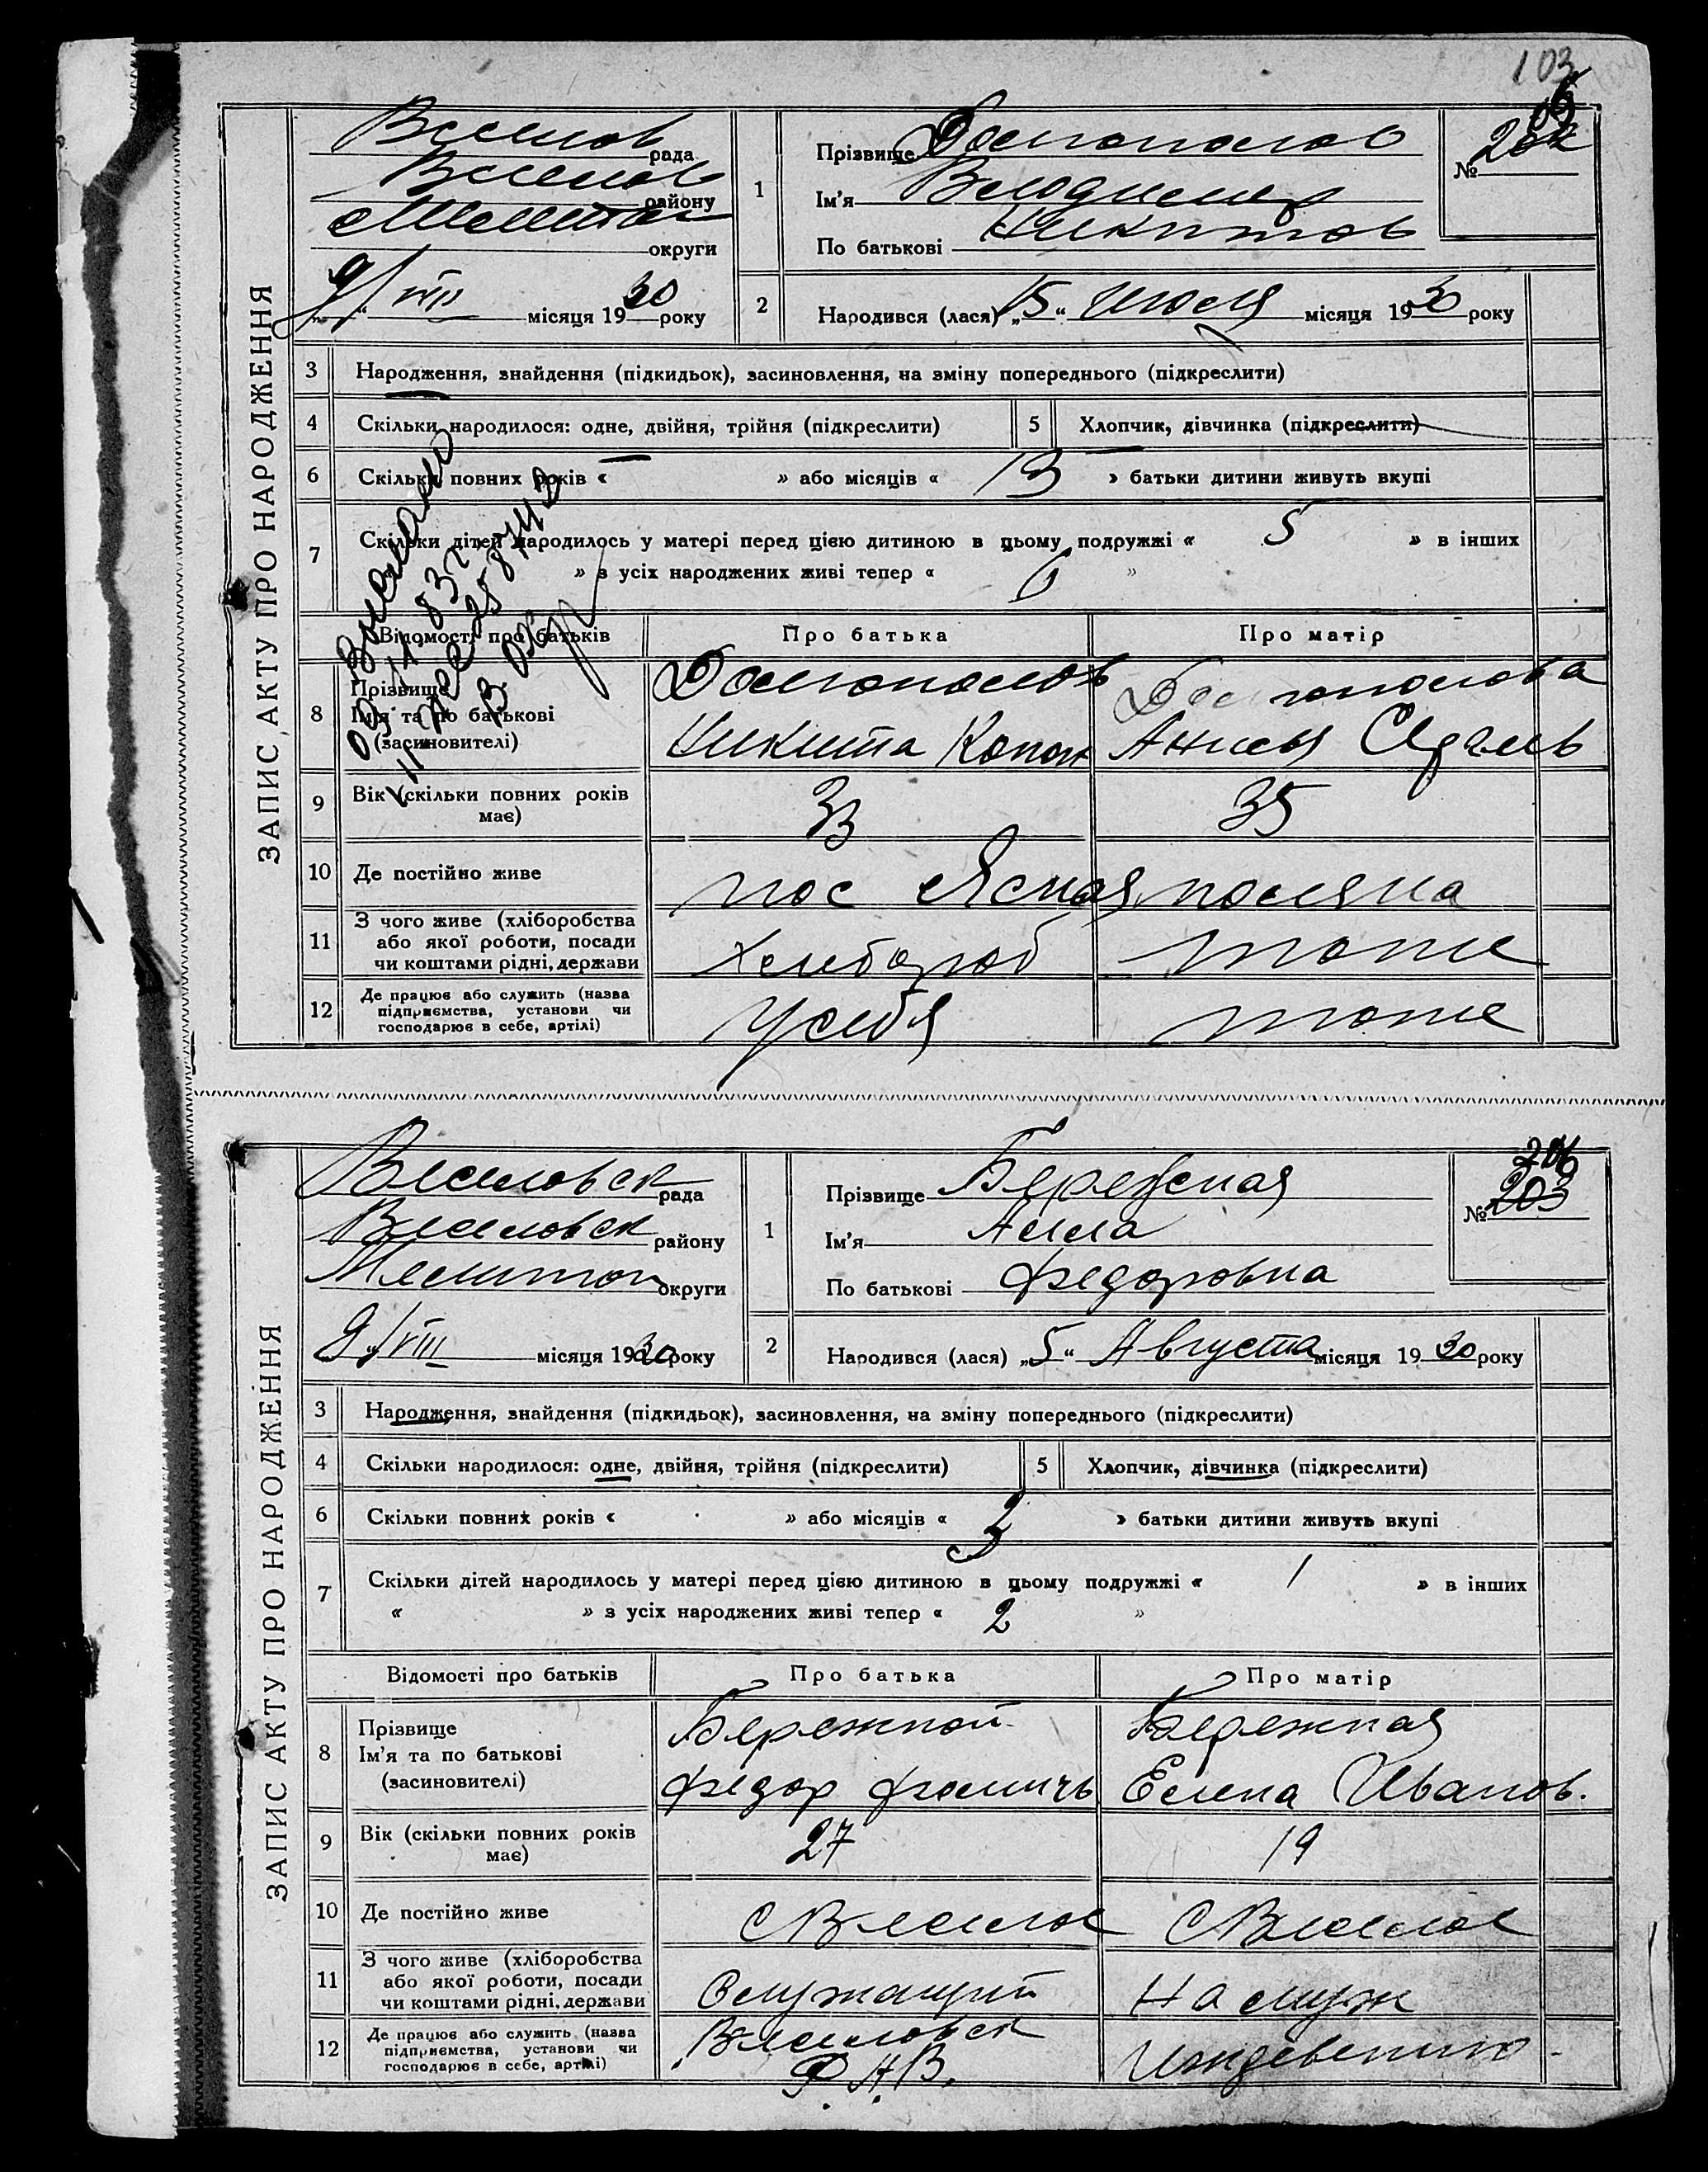 103
ЗАПИС АКТУ ПРО НАРОДЖЕННЯ
Веселов рада
Веселов району
Мелитоп округи
9/VIII місяця 1930 року
1
Прізвище Долгополов
Ім'я Владимер
По батькові Никитов
№ 202
2 Народився (лася) „15“ Июля місяця 1930 року
3 Народження, знайдення (підкидьок), засиновлення, на зміну попереднього (підкреслити)
4 Скільки народилося: одне, двійня, трійня (підкреслити) 5 Хлопчик, дівчинка (підкреслити)
6 Скільки повних років « — » або місяців « 13 » батьки дитини живуть вкупі
7 Скільки дітей народилось у матері перед цією дитиною в цьому подружжі « 5 » в інших
» з усіх народжених живі тепер « 6 »
Відомості про батьків Про батька Про матір
8 Прізвище
Ім'я та по батькові
(засиновителі)
Долгополов Долгополова
Никита Конон
9 Вік (скільки повних років має) 33 35
10 Де постійно живе пос Ясная поляна
11 З чого живе (хліборобства або якої роботи, посади чи коштами рідні, держави Хлебороб тоже
12 Де працює або служить (назва підприємства, установи чи господарює в себе, артілі) у себя тоже
ЗАПИС АКТУ ПРО НАРОДЖЕННЯ
Веселовск рада
Веселовск району
Мелитоп округи
9/VIII місяця 1930 року
1
Прізвище Бережная
Ім'я Алла
По батькові Федоровна
206
№ 203
2 Народився (лася) „5“ Августа місяця 1930 року
3 Народження, знайдення (підкидьок), засиновлення, на зміну попереднього (підкреслити)
4 Скільки народилося: одне, двійня, трійня (підкреслити) 5 Хлопчик, дівчинка (підкреслити)
6 Скільки повних років « » або місяців « » батьки дитини живуть вкупі
7 Скільки дітей народилось у матері перед цією дитиною в цьому подружжі « 1 » в інших
« » з усіх народжених живі тепер « 2 »
Відомості про батьків Про батька Про матір
8 Прізвище
Ім'я та по батькові
(засиновителі)
Бережной Бережная
Федор Фомичь Елена Иванов.
9 Вік (скільки повних років має) 27 19
10 Де постійно живе с Веселое с Веселое
11 З чого живе (хліборобства або якої роботи, посади чи коштами рідні, держави Служащий На служ
12 Де працює або служить (назва підприємства, установи чи господарює в себе, артілі) Веселовск Иждевению